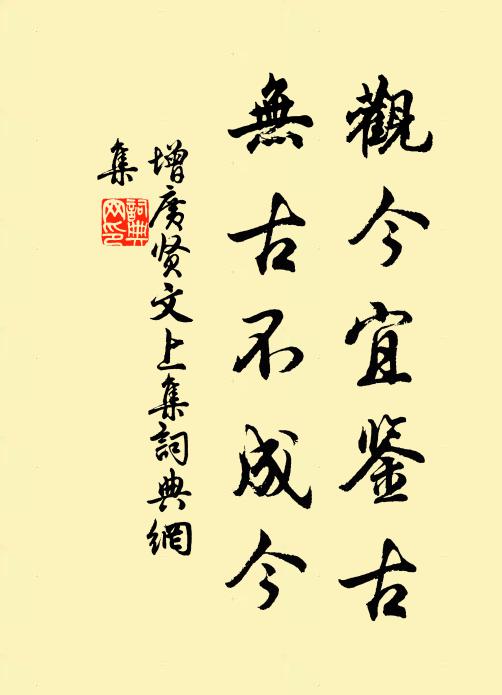 觀今宜鉴古
無古不成今
增廣贤文上集詞典網
集
詞典網印